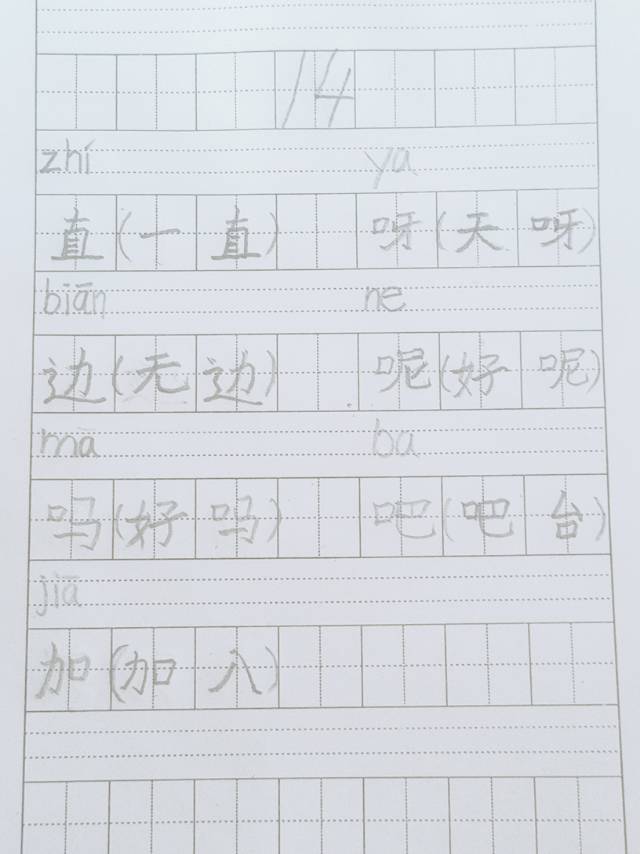 14
zhí ya
直(一直) 呀(天呀)
biān ne
边(无边) 呢(好呢)
ma ba
吗(好吗) 吧(吧台)
jiā
加(加入)